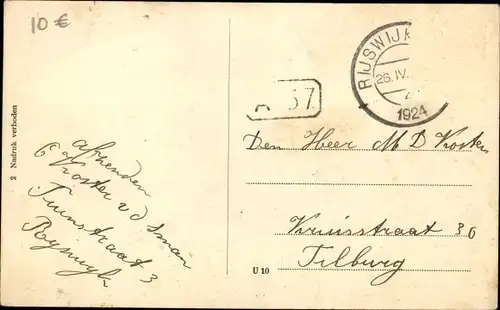 10 €
RIJSWIJK
26.IV.
1924
A 57
2 Nadruk verboden
afzender
Koster v d
Tuinstraat 3
Rijswijk
Den Heer M D Koster
Kruisstraat 36
Tilburg
U 10